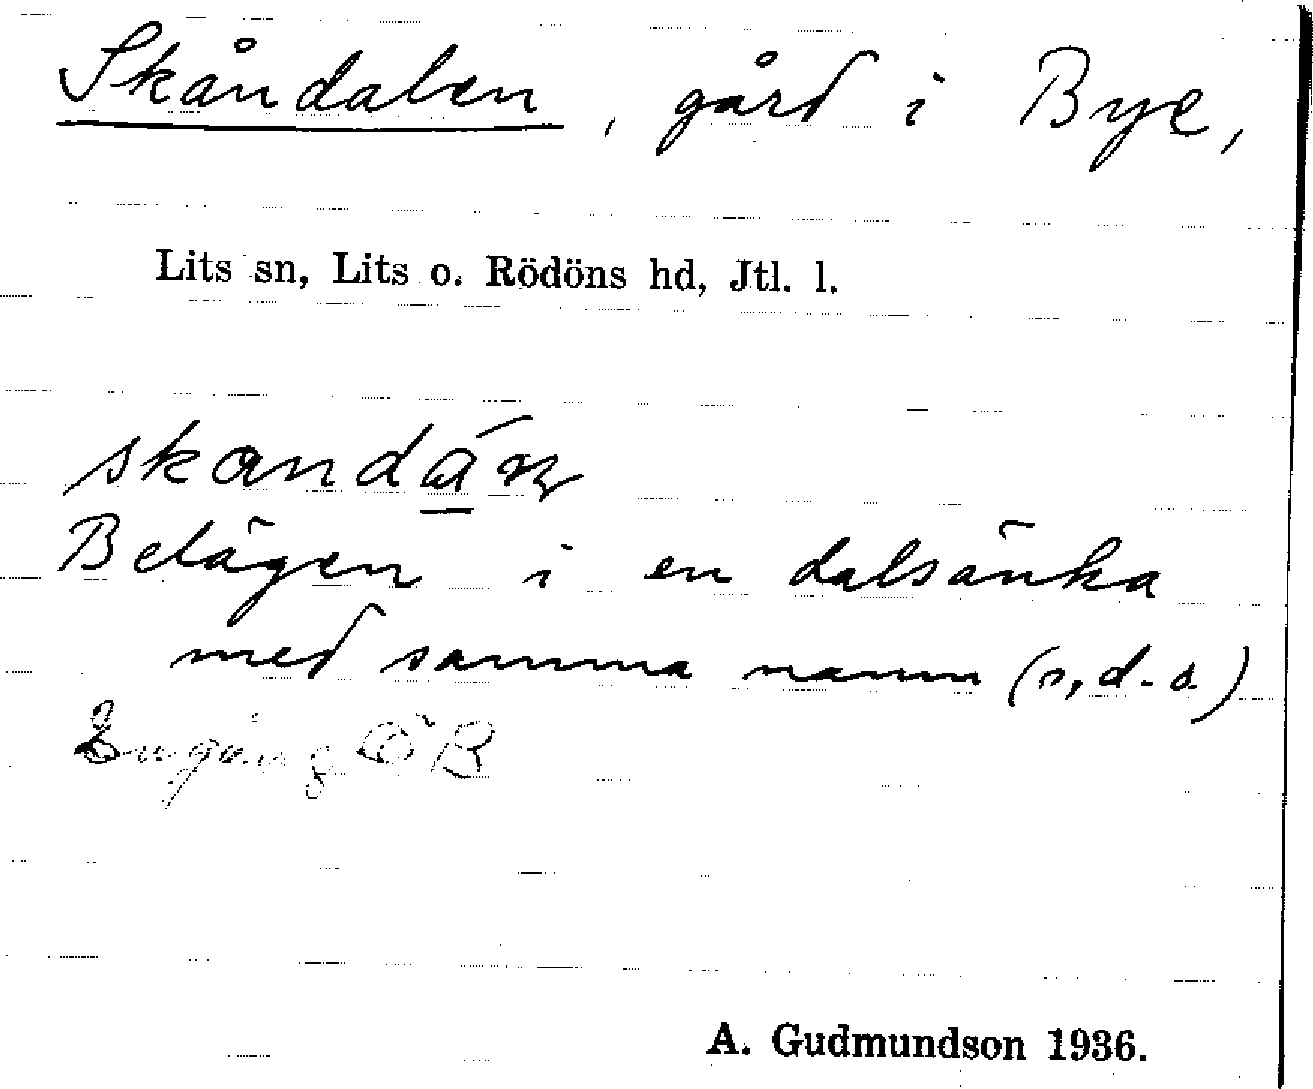 Skåndalen, gård i Bye,
Lits sn, Lits o. Rödöns hd, Jtl. l.
skandán
Belägen i en dalsänka
med samma namn (s.d.o)
Ingång ÖB
A. Gudmundson 1936.